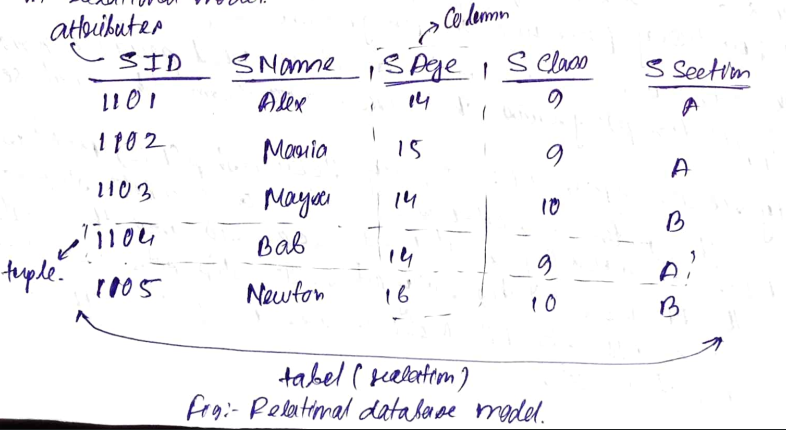 Relational Model.
attributes
Column
SID SName SAge SClass SSection
1101 Alex 14 9 A
1102 Maria 15 9 A
1103 Maya 14 10 B
1104 Bab 14 9 A
tuple.
1105 Newton 16 10 B
tabel (relation)
Fig:- Relational database model.